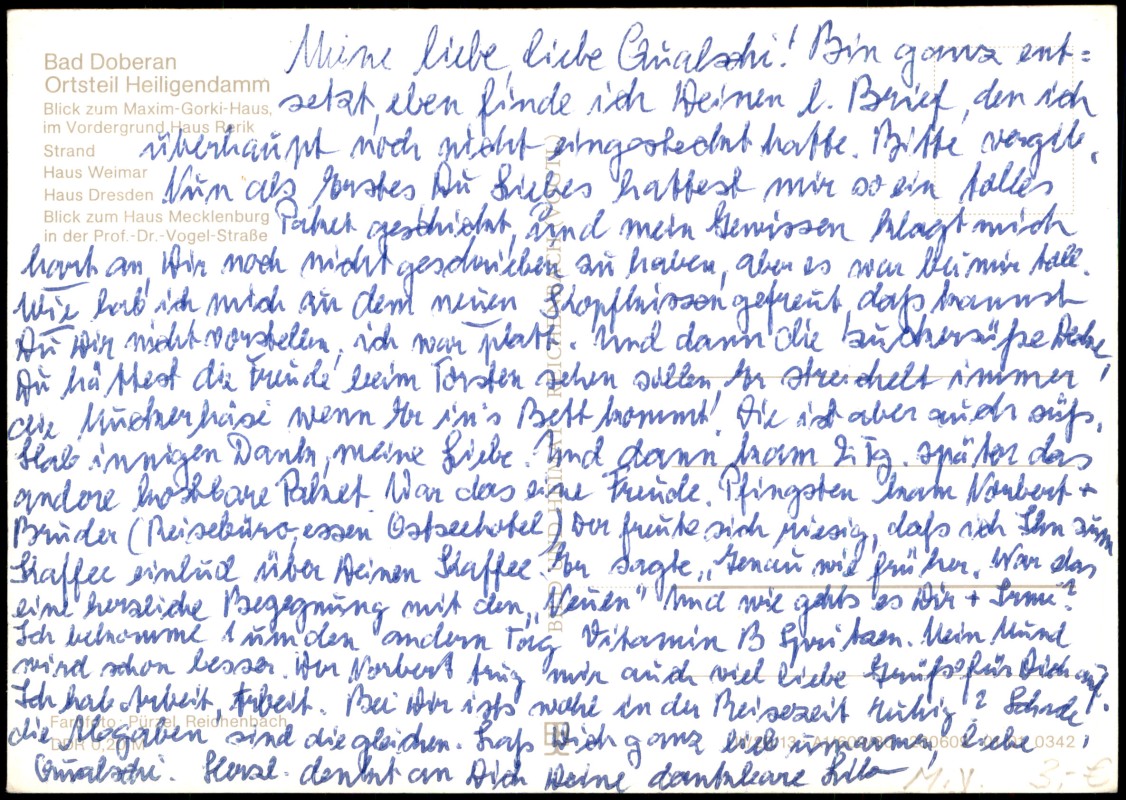 Bad Doberan
Ortsteil Heiligendamm
Blick zum Maxim-Gorki-Haus,
im Vordergrund Haus Rerik
Strand
Haus Weimar
Haus Dresden
Blick zum Haus Mecklenburg
in der Prof.-Dr.-Vogel-Straße
Meine liebe, liebe Qualschi! Bin ganz ent=
setzt, eben finde ich Deinen l. Brief, den ich
überhaupt noch nicht eingesteckt hatte. Bitte vergib.
Nun als Erstes Du Liebes hattest mir so ein tolles
Paket geschickt, und mein Gewissen klagt mich
hart an, Dir noch nicht geschrieben zu haben, aber es war bei mir toll.
Wie hab' ich mich zu dem neuen Kopfkissen gefreut, daß kannst
Du Dir nicht vorstellen, ich war platt. Und dann die zuckersüße Decke,
Du hättest die Freude beim Torsten sehen sollen Er streichelt immer
die wenn Er in's Bett kommt! Die ist aber auch süß.
Hab innigen Dank, meine Liebe. Und dann kam 2 Tg. später das
andere kostbare Paket. War das eine Freude. Pfingsten kam Norbert +
Bruder (Reisebüro-essen Ostseehotel) Der freute sich riesig, daß ich Ihn zum
Kaffee einlud über Deinen Kaffee. Er sagte, "Genau wie früher. War das
eine herzliche Begegnung mit den "Neuen" Und wie gehts es Dir + Irmi?
Ich bekomme 1 um den andern Tag Vitamin B Spritzen. Mein Mund
wird schon besser. Der Norbert trug mir auch viel liebe Grüße für Dich auf.
Ich hab Arbeit, Arbeit. Bei Dir ists wohl in der Reisezeit ruhig? Schade,
die Abgaben sind die gleichen. Laß Dich ganz lieb umarmen, liebe
Qualschi. Herzl. denkt an Dich Deine dankbare Lilo
Farbfoto: Pürzel, Reichenbach
DDR 0,20 M
BILD UND HEIMAT REICHENBACH (VOGTL)
0342
M.V. 3,- €